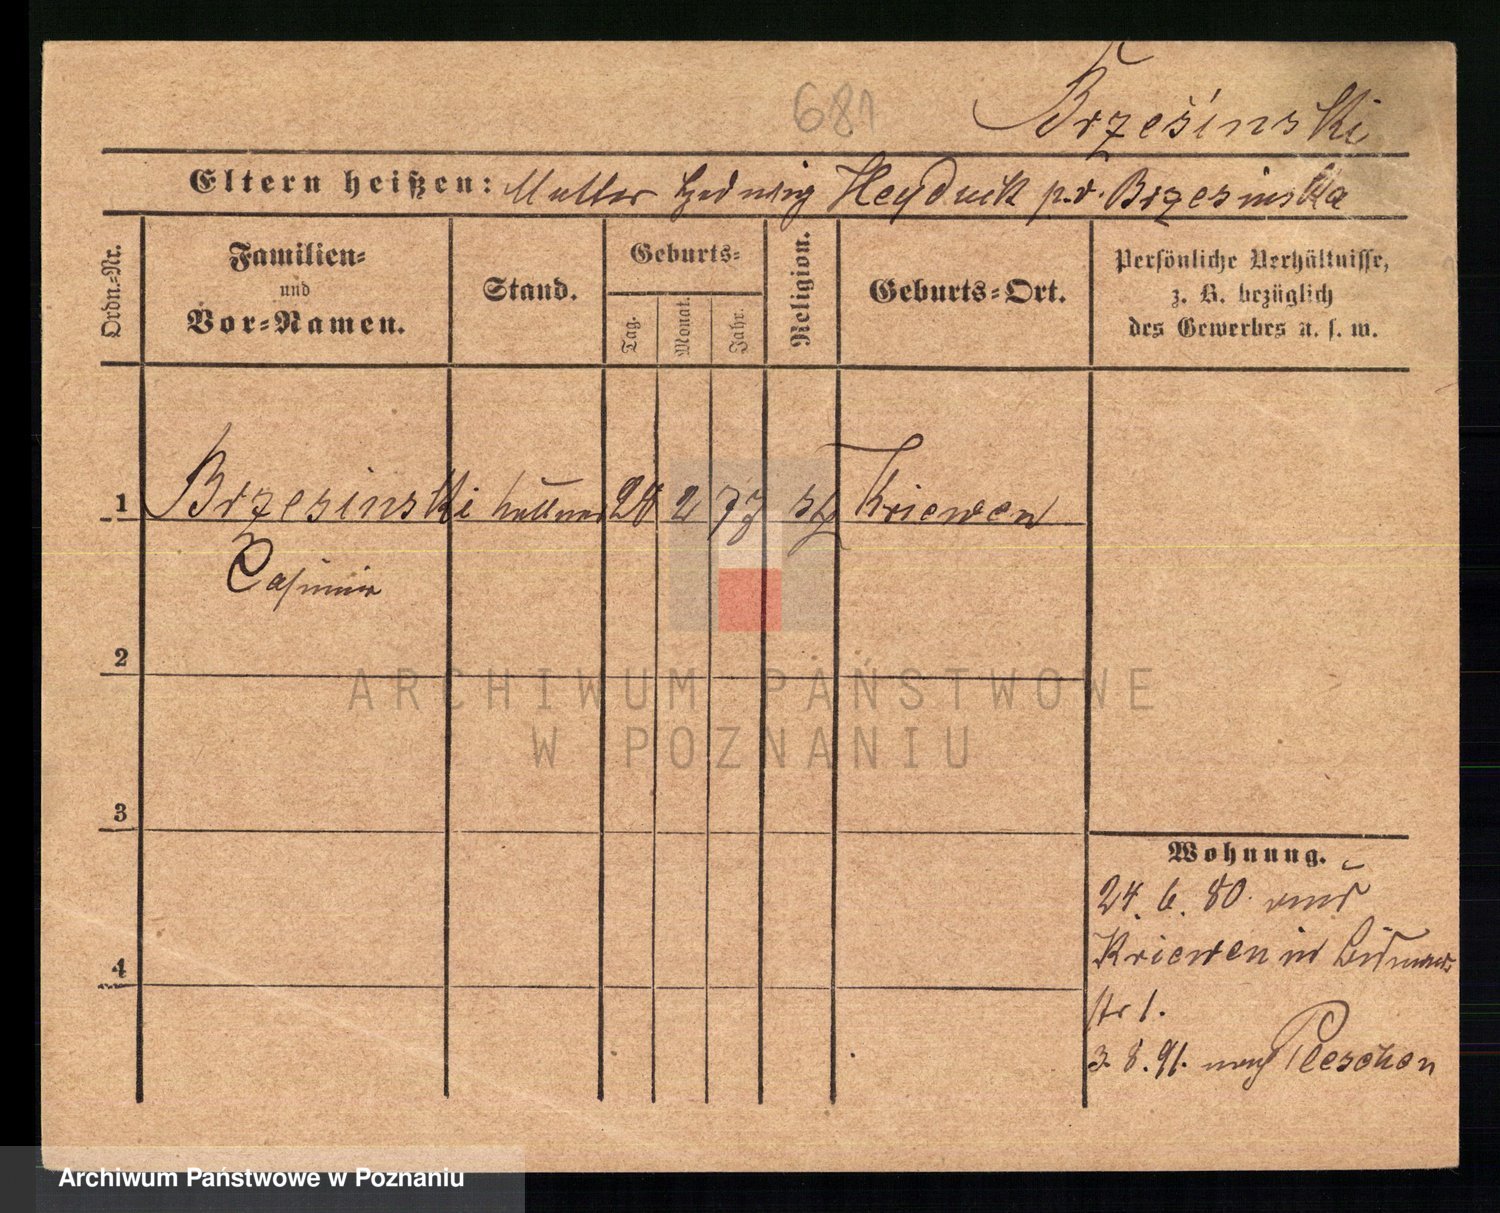 681
Brzesinski
Eltern heißen: Mutter Hedwig Heyduck p.v. Brzesinska
Ordn.-Nr.
Familien-
und
Vor-Namen.
Stand.
Geburts-
Tag.
Monat.
Jahr.
Religion.
Geburts-Ort.
Persönliche Verhältnisse,
z. B. bezüglich
des Gewerbes u. s. w.
1 Brzesinski 2 77 Kriewen
Casimir
2
3
4
Wohnung.
24. 6. 80. aus
Kriewen in
str 1.
3. 8. 91. nach Pleschen
ARCHIWUM PAŃSTWOWE
W POZNANIU
Archiwum Państwowe w Poznaniu